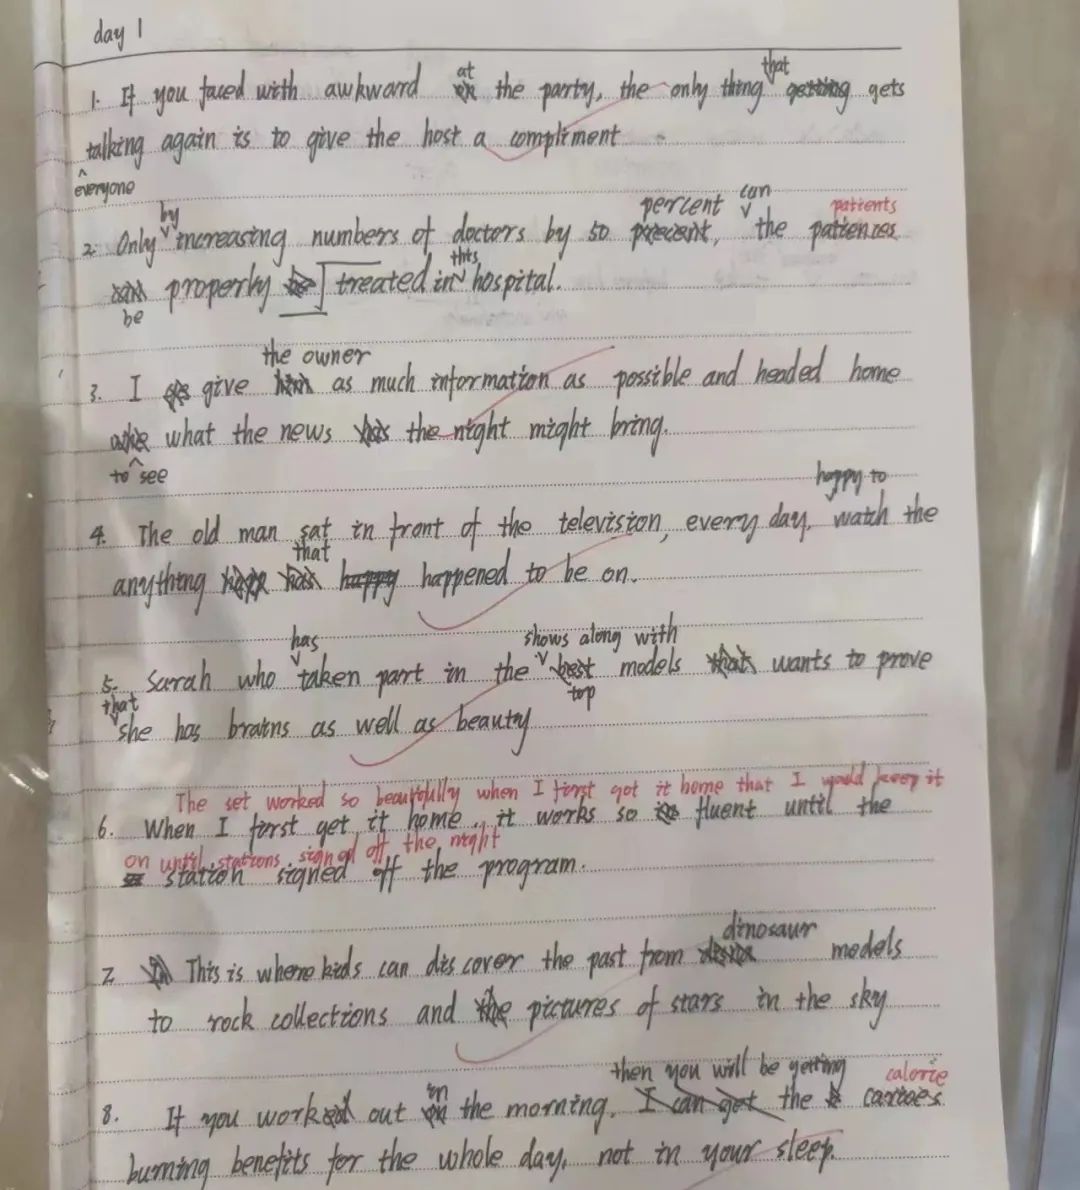 day 1
that
1. If you faced with awkward at the party, the only thing getting gets
talking again is to give the host a compliment
everyone
by percent can patients
2. Only increasing numbers of doctors by 50 the patiences
properly treated in this hospital.
be
the owner
3. I give as much information as possible and headed home
what the news the night might bring.
to see
happy to
4. The old man sat in front of the television, every day, watch the
that
anything happy happened to be on.
has shows along with
5. Sarah who taken part in the best models that wants to prove
that top
she has brains as well as beauty
The set worked so beautifully when I first got it home that I would keep it
6. When I first get it home, it works so fluent until the
on until stations signed off the night
station signed off the program.
dinosaur
7. This is where kids can discover the past from models
to rock collections and the pictures of stars in the sky
then you will be getting calorie
8. If you worked out in the morning, I can get the
burning benefits for the whole day, not in your sleep.